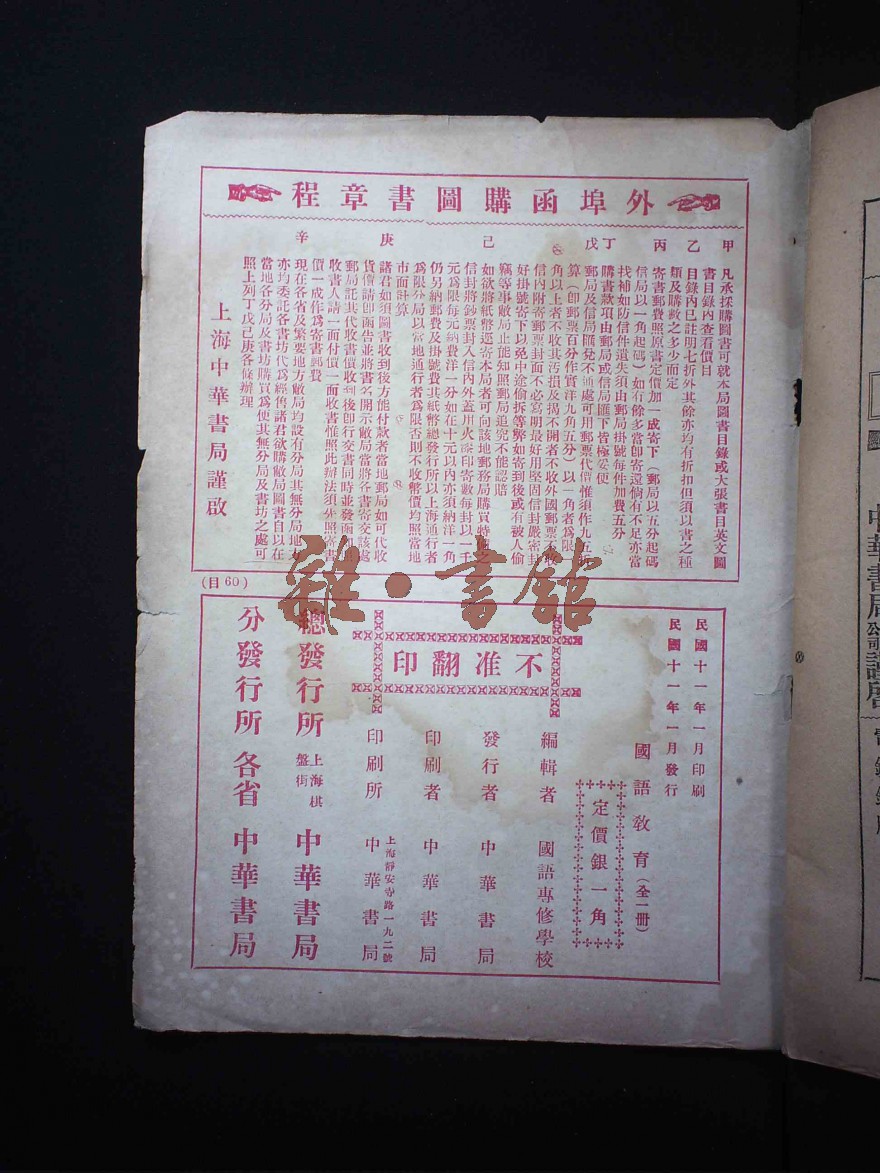 外埠函購圖書章程
甲 凡承採購圖書可就本局圖書目錄或大張書目英文圖
書目錄內查看價目
乙 目錄內已註明七折外其餘亦均有折扣但須以書之種
類及購數之多少而定
丙 寄書郵費照原書定價加一成寄下（郵局以五分起碼
信局以一角起碼）如有餘多當卽寄還倘有不足亦當
找補如防信件遺失須由郵局掛號每件加費五分
丁 購書款項由郵局或信局匯下皆極妥便
戊 郵局及信局匯兌不通處可用郵票代價惟須作九五折
算（卽郵票百分作實洋九角五分）以一角者爲限
角以上者不收其汚損及揭不開者不收外國郵票不收
信內附寄郵票封面不必寫明最好用堅固信封嚴密封
好掛號寄下以免中途偷拆等弊如寄到後或有被人偷
竊等事敝局止能知照郵局追究不能認賠
己 如欲將紙幣逕寄本局者可向該地郵務局購買特製之
信封將鈔票封入信內外蓋用火漆印寄數每封以一千
元爲限每元納費洋一分如在十元以內亦須納洋一角
仍另納郵費及掛號費其紙幣總發行所以上海通行者
爲限分局以當地通行者爲限否則不收幣價均照當地
市面計算
庚 諸君如須圖書收到後方能付款者當地郵局如可代收
貨價請卽函告並將書名開示敝局當將各書寄交該處
郵局託其代收書價收到後卽行交書同時並發函知照
收書人請一面付價一面收書惟照此辦法須外照寄書
價一成作爲寄書郵費
辛 現在各省及緊要地方敝局均設有分局其無分局地方
亦均委託各書坊代爲經售諸君欲購敝局圖書自以在
當地各分局及書坊購買爲便其無分局及書坊之處可
照上列丁戊己庚各條辦理
上海中華書局謹啟
（目60）
民國十一年一月印刷
民國十一年一月發行
國語教育（全一冊）
定價銀一角
不准翻印
編輯者 國語專修學校
發行者 中華書局
印刷者 中華書局
印刷所 上海靜安寺路一九二號 中華書局
總發行所 上海棋盤街 中華書局
分發行所 各省 中華書局
雜·書館
中華書局公司謹啓